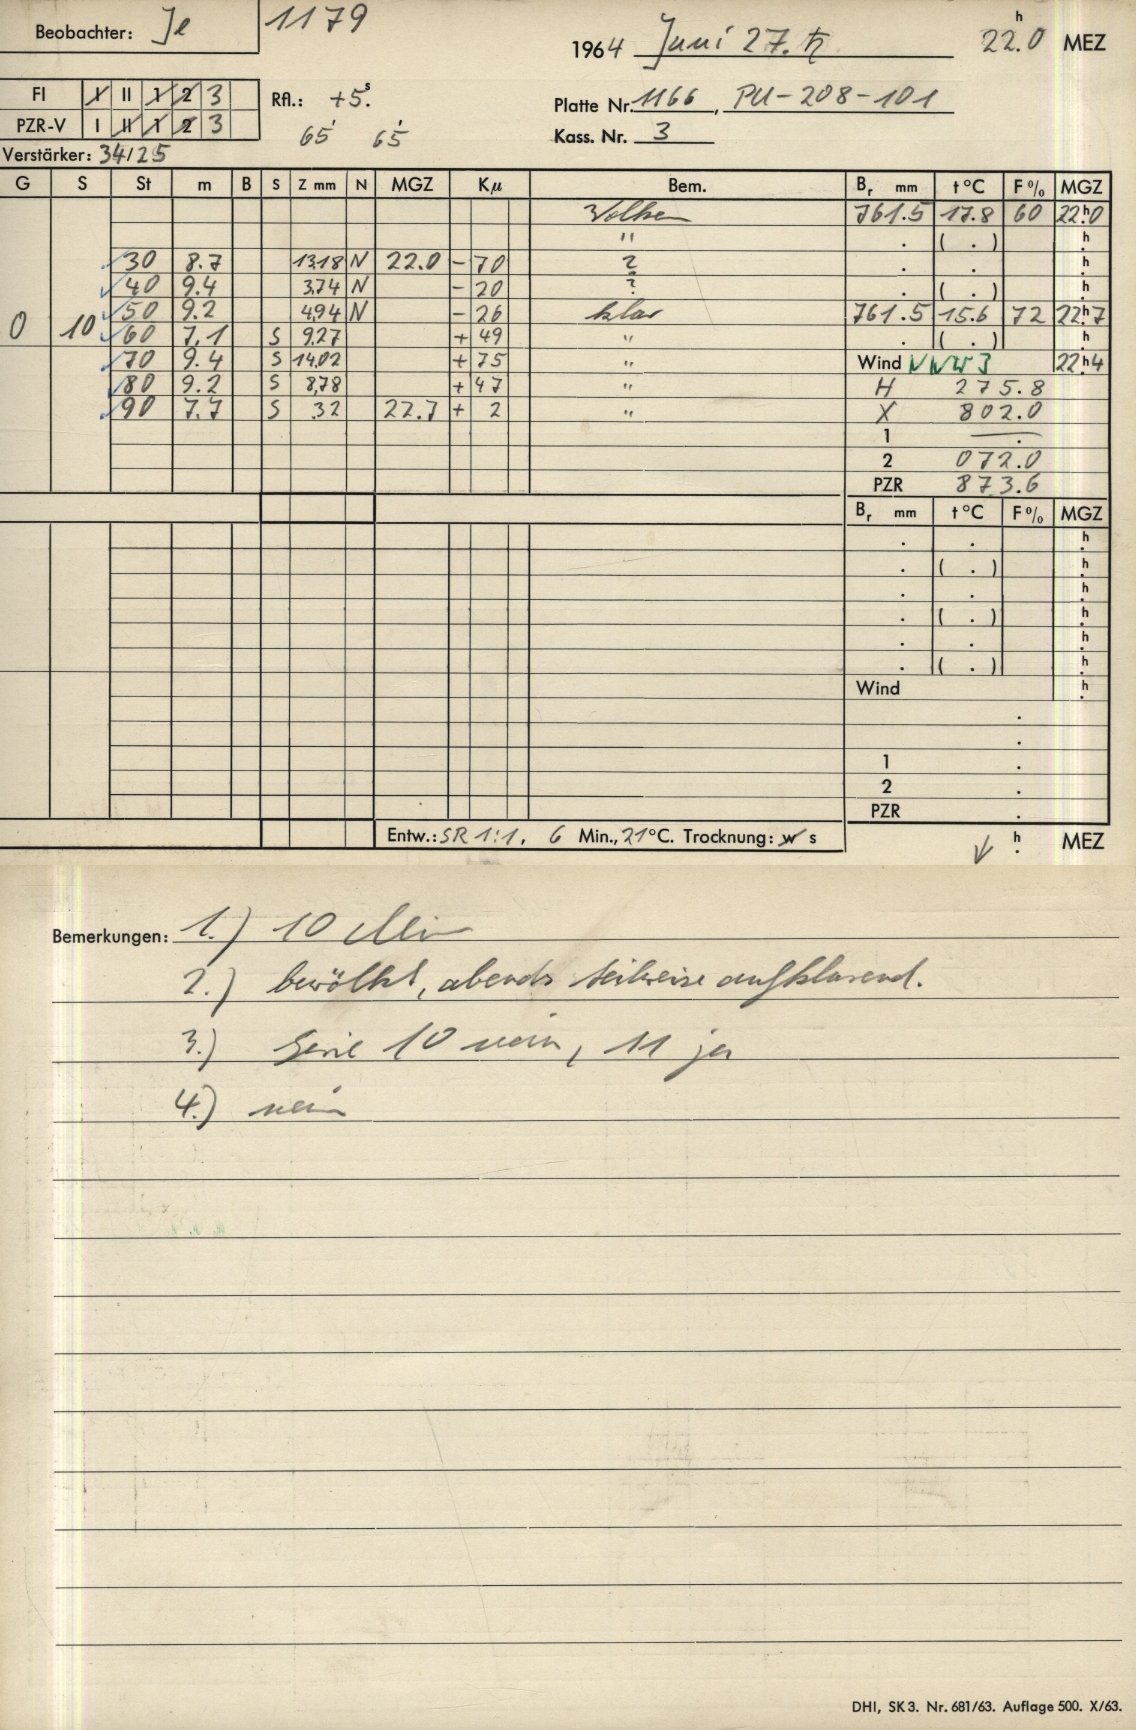 Beobachter: Je 1179
1964 Juni 27. ♄ 22h.0 MEZ
FI I II 1 2 3 Rfl.: +5s.
Platte Nr. 1166, PU-208-101
PZR-V I II 1 2 3 65 65
Kass. Nr. 3
Verstärker: 34/25
G S St m B S Z mm N MGZ Kμ Bem. Br mm t °C F % MGZ
Wolken 761.5 17.8 60 22h.0
" . ( . ) h.
30 8.7 13,18 N 22.0 - 70 ? . . h.
40 9.4 3,74 N - 20 ? . ( . ) h.
50 9.2 4,94 N - 26 klar 761.5 15.6 72 22h.7
0 10 60 7.1 S 9,27 + 49 " . ( . ) h.
70 9.4 S 14,02 + 75 " Wind NNW 3 22h.4
80 9.2 S 8,78 + 47 " H 275.8
90 7.7 S 32 22.7 + 2 " X 802.0
1 — .
2 072.0
PZR 873.6
Br mm t °C F % MGZ
. . h.
. ( . ) h.
. . h.
. ( . ) h.
. . h.
. ( . ) h.
Wind h.
.
.
1 .
2 .
PZR .
Entw.: SR 1:1, 6 Min., 21 °C. Trocknung: w s ↓ h. MEZ
Bemerkungen: 1.) 10 Min
2.) bewölkt, abends teilweise aufklarend.
3.) Serie 10 nein, 11 ja
4.) nein
DHI, SK 3. Nr. 681/63. Auflage 500. X/63.